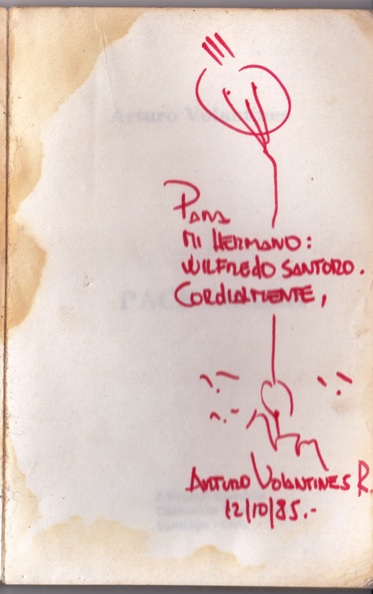 Arturo Volantines
Para
mi hermano:
Wilfredo Santoro.
Cordialmente,
Arturo Volantines R.
12/10/85.-